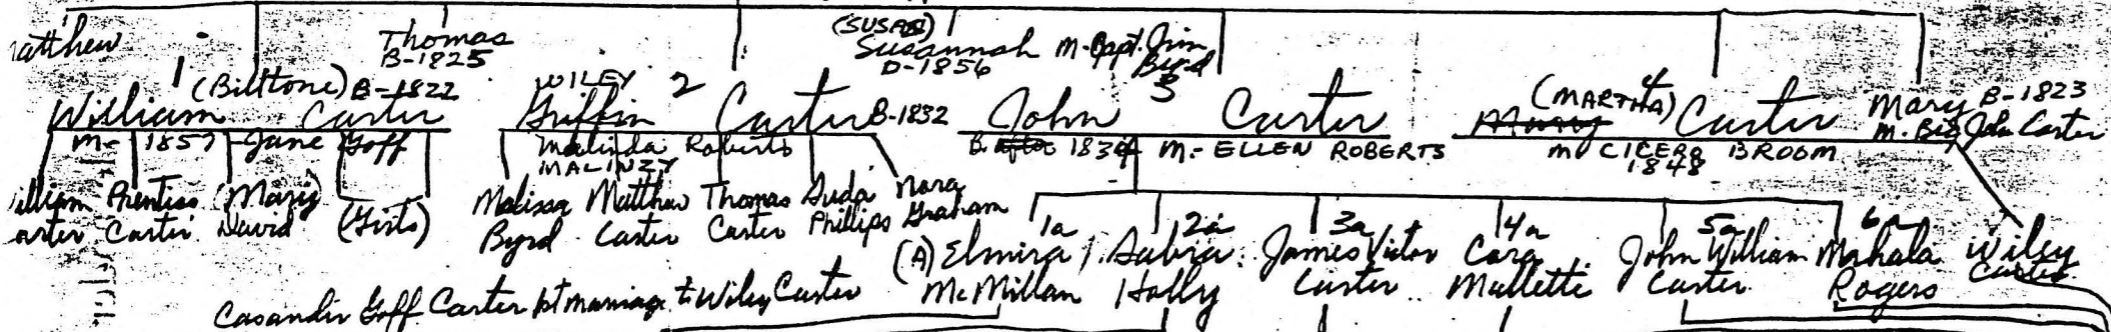 atthew
Thomas
B-1825
(SUSAN)
Susannah M-Capt. Jim Byrd
D-1856
1 (Billtone) B-1822
William Carter
M- 1857 Jane Goff
WILEY 2
Griffin Carter B-1832
Malinda Roberts
MALINZY
3
John Carter
B. after 1834 M- ELLEN ROBERTS
(MARTHA) 4
Mary Carter
M CICERO BROOM
1848
Mary B-1823
M. Big John Carter
illiam arter
Prentiss Carter
(Mary) David
(Girls)
Melissa Byrd
Matthew Carter
Thomas Carter
Phillips
Nora Graham
1a
(A) Elmira McMillan
2a
Holly
3a
James Victor Carter
4a
Cora Mallette
5a
John William Carter
6a
Mahala Rogers
Wiley Carter
Casander Goff Carter 1st marriage to Wiley Carter